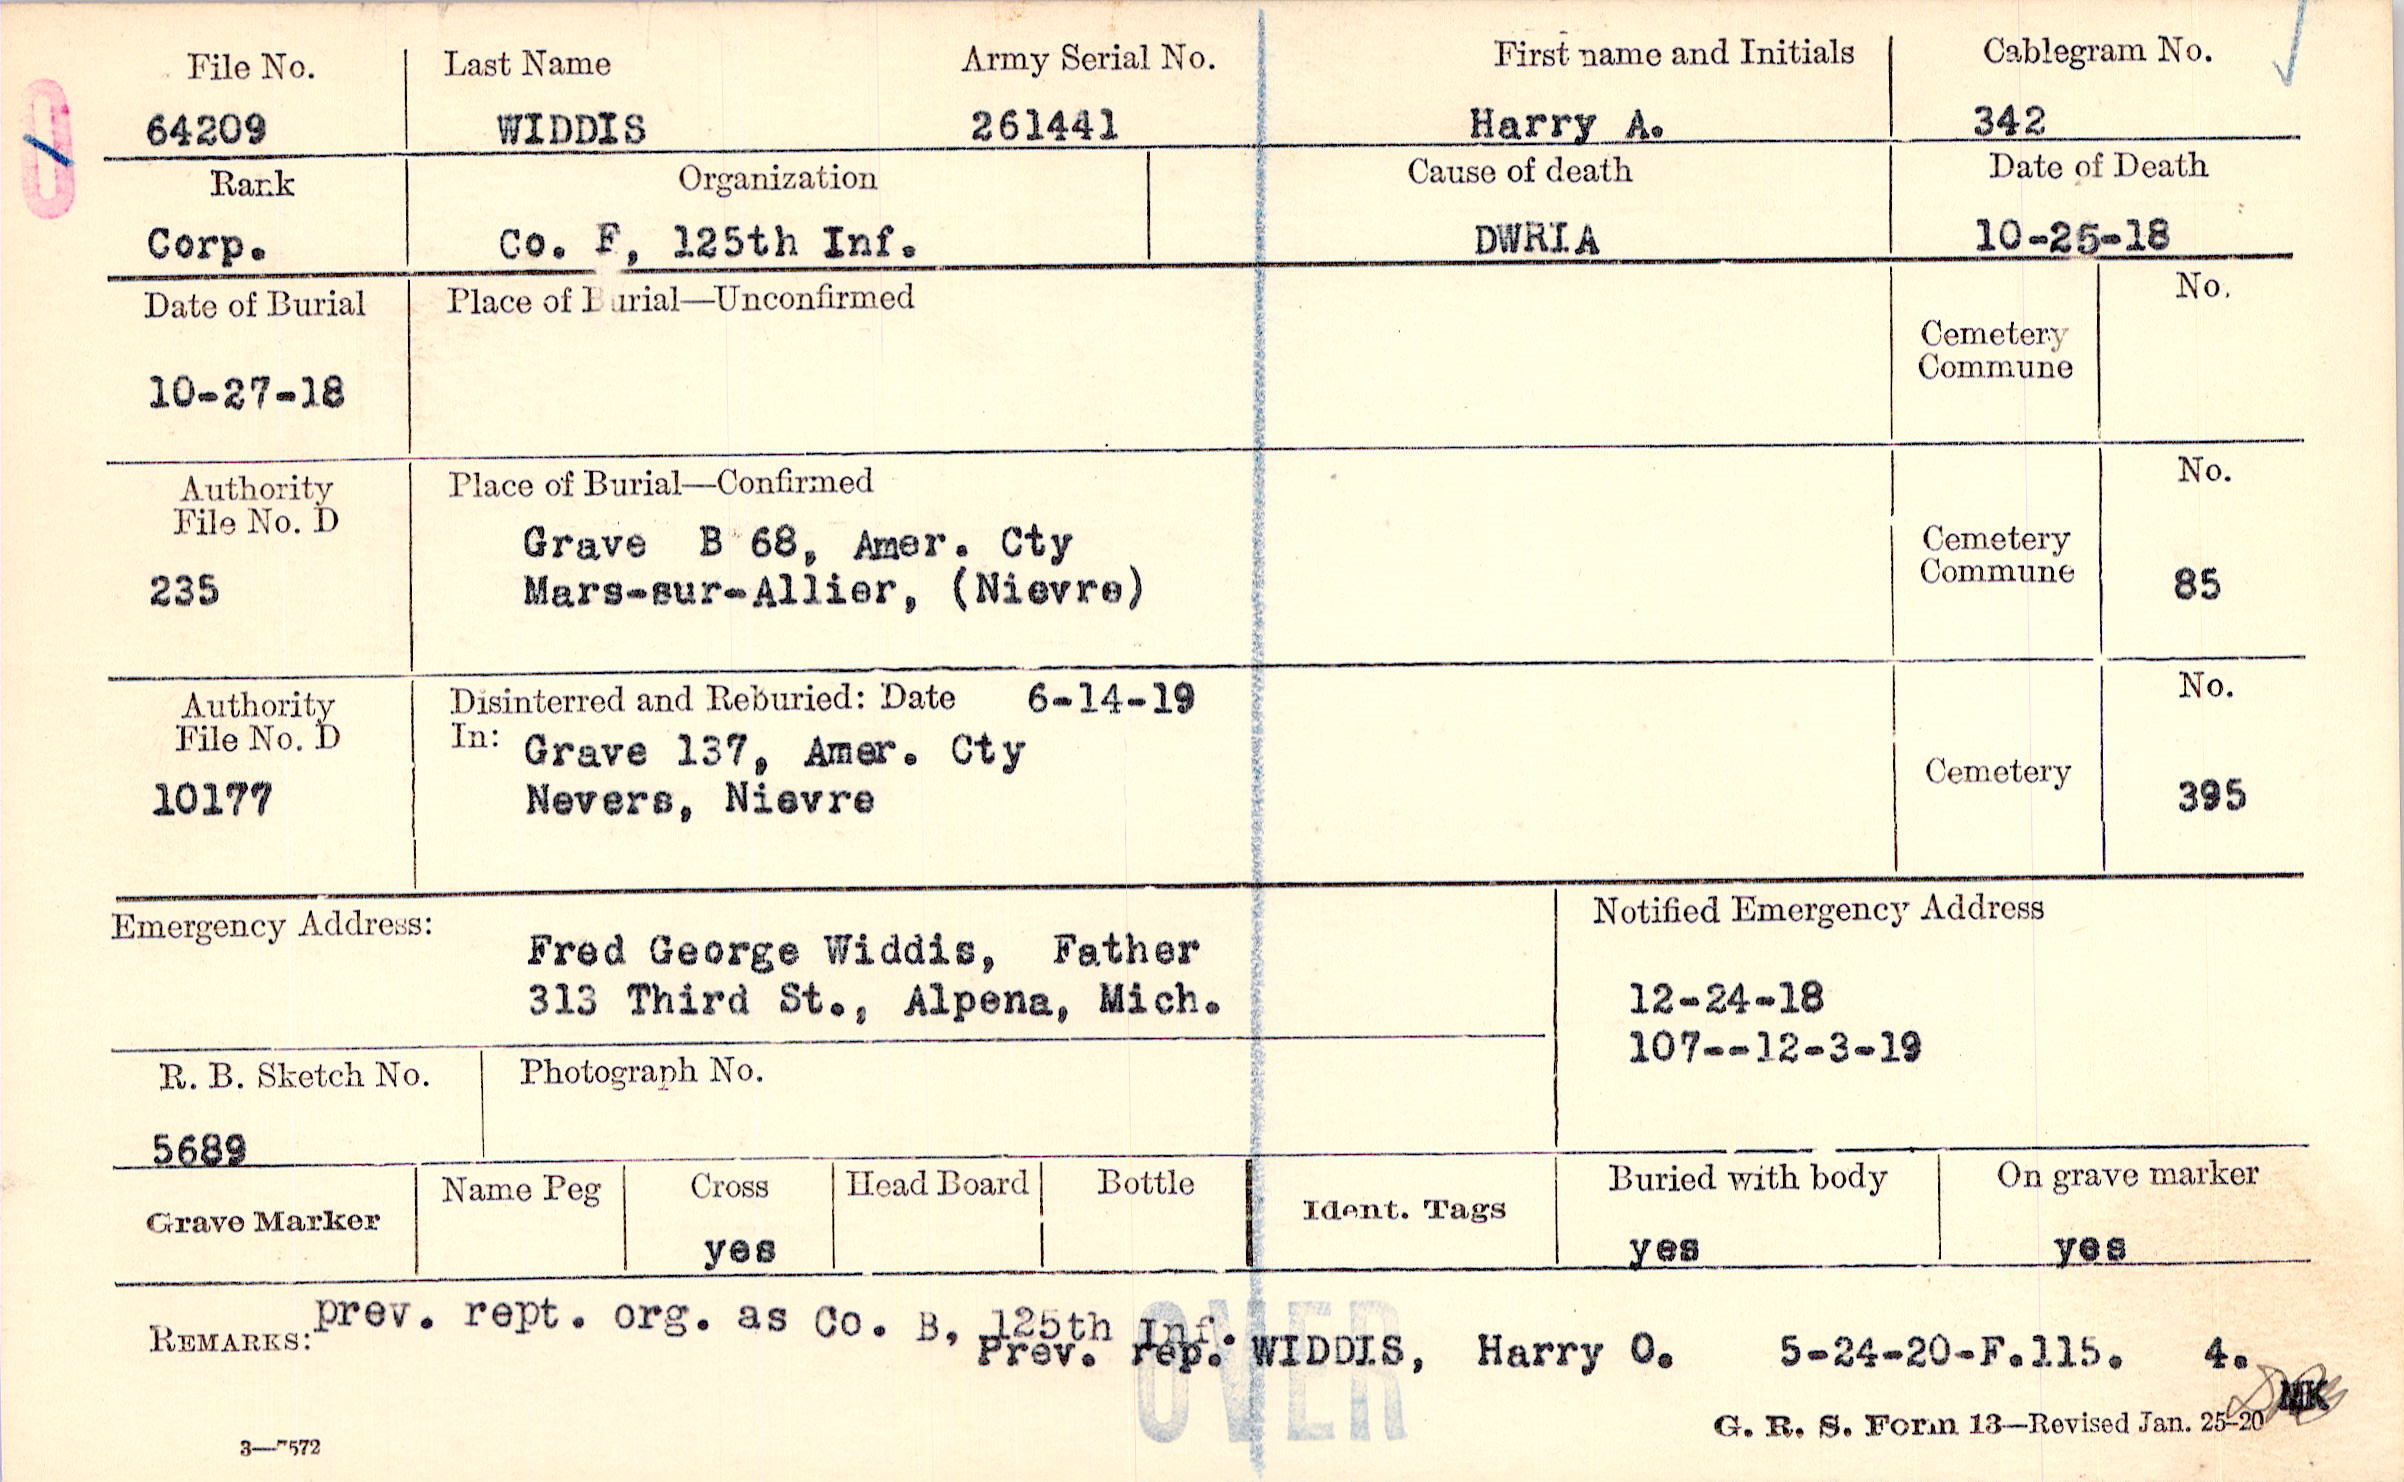 File No. Last Name Army Serial No. First name and Initials Cablegram No.
64209 WIDDIS 261441 Harry A. 342
Rank Organization Cause of death Date of Death
Corp. Co. F, 125th Inf. DWRIA 10-25-18
Date of Burial Place of Burial—Unconfirmed No.
Cemetery
Commune
10-27-18
Authority Place of Burial—Confirmed No.
File No. D
Grave B 68, Amer. Cty Cemetery
235 Mars-sur-Allier, (Nievre) Commune 85
Authority Disinterred and Reburied: Date 6-14-19 No.
File No. D In: Grave 137, Amer. Cty
Cemetery
10177 Nevers, Nievre 395
Emergency Address: Notified Emergency Address
Fred George Widdis, Father
313 Third St., Alpena, Mich. 12-24-18
107--12-3-19
R. B. Sketch No. Photograph No.
5689
Grave Marker Name Peg Cross Head Board Bottle Ident. Tags Buried with body On grave marker
yes yes yes
REMARKS: prev. rept. org. as Co. B, 125th Inf.
Prev. rep. WIDDIS, Harry O. 5-24-20-F.115. 4.
OVER
MK
3—7572 G. R. S. Form 13—Revised Jan. 25-20